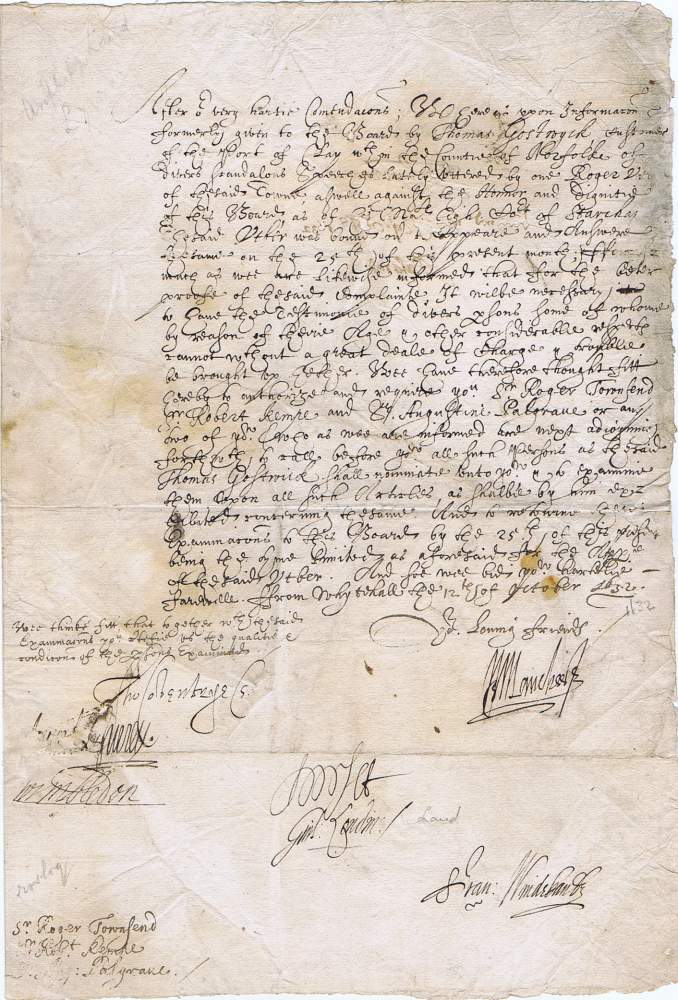 After or very hartie Comendacons; Whereas upon Informacon
formerly given to the Board by Thomas Gostwyck Customer
of the Port of Lay wthin the Countie of Norfolke of
divers scandalous Speeches lately uttered by one Roger
of thesaid Towne, aswell against the Honnor and Dignitie
of this Board, as of
Thesaid Utber was bound on to appeare and Answere
thesame on the 25th of this present month; Fforas
much as wee are likewise informed that for the better
proofe of thesaid Complainte, It wilbe necessary
to have the Testimonie of divers psons some of whome
by reason of theire Age & other considerable respects
cannot without a great deale of Charge & trouble
be brought up hether. Wee have therefore thought fitt
hereby to authorize and require you Sr Roger Townsend
Sr Robert Kempe and Sr Augustine Palgrave or any
two of you (who as wee are informed are next adioyning
forthwth to call before you all such Persons as thesaid
Thomas Gostwick shall nominate unto you & to examine
them upon all such Articles, as shalbe by him exhi
bited concerning thesame And to retourne
Examinacons to this Board by the 25th of this psent
being the tyme limited as aforesaid for the Appce
of thesaid Utber. And soe wee bid you hartelie
Farewell. Ffrom Whytehall the 12th of October 1632.
1632
Wee thinke fitt that together wth thesaid
Examinacons you certifie us the qualitie &
condicons of the psons Examined
Yor Loving Friends
Tho: Coventrye C.
Arundel
Wimbledon
Dorset
Guil: London
Laud
Fran: Windebank
Sr Roger Townsend
Sr Robt Kempe
Palgrave